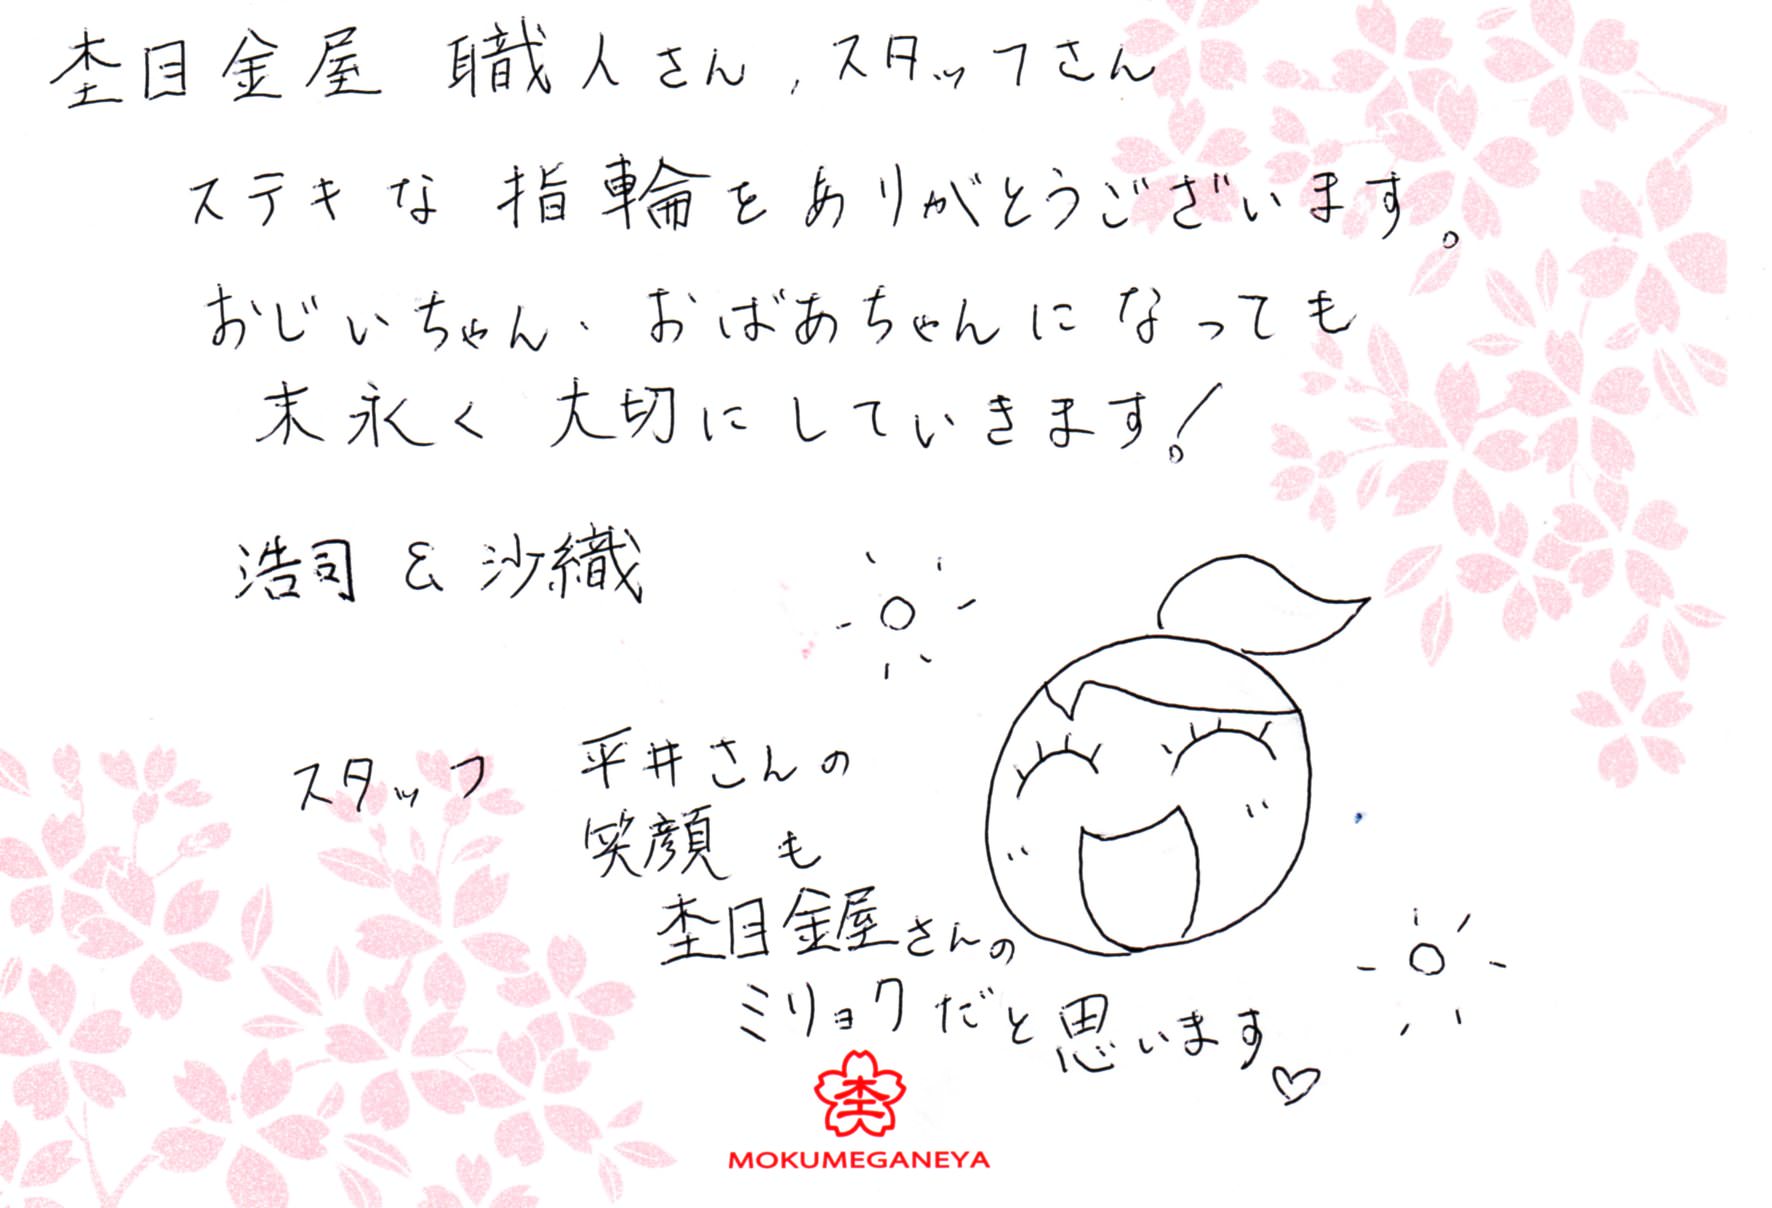 杢目金屋 職人さん,スタッフさん
ステキな指輪をありがとうございます。
おじいちゃん・おばあちゃんになっても
末永く大切にしていきます!
浩司 & 沙織
スタッフ 平井さんの
笑顔も
杢目金屋さんの
ミリョクだと思います♡
杢
MOKUMEGANEYA